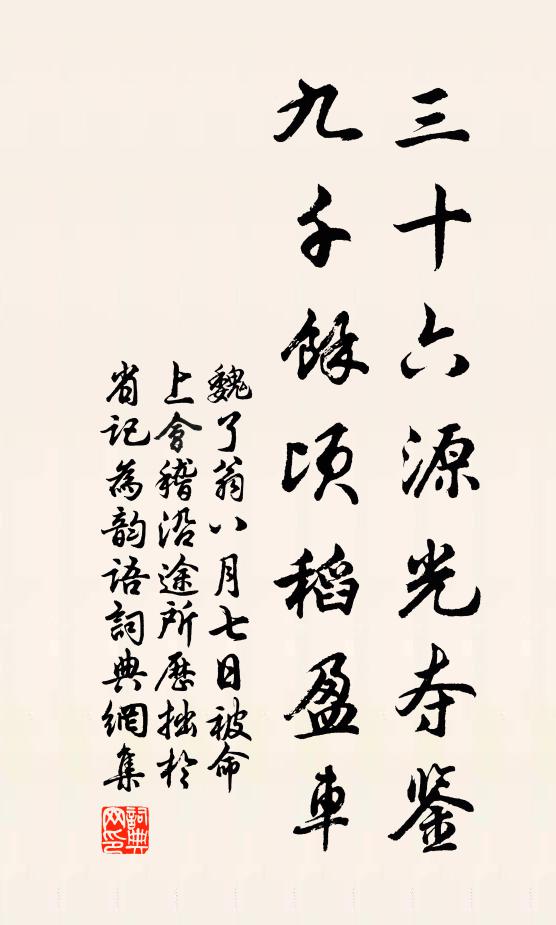 三十六源光夺鉴
九千餘顷稻盈車
魏了翁八月七日被命
上會稽沿途所歷拙於
省记為韵语詞典網集
詞典网印